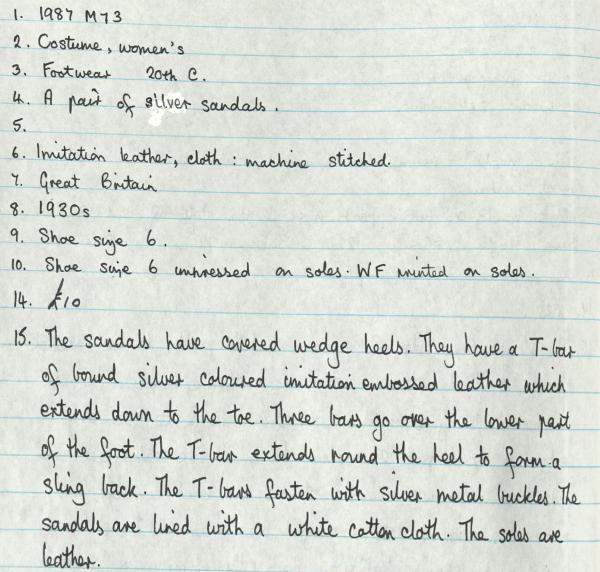 1. 1987 M73
2. Costume, women's
3. Footwear 20th C.
4. A pair of silver sandals.
5.
6. Imitation leather, cloth : machine stitched.
7. Great Britain
8. 1930s
9. Shoe size 6.
10. Shoe size 6 impressed on soles. WF printed on soles.
14. £10
15. The sandals have covered wedge heels. They have a T-bar
of bound silver coloured imitation embossed leather which
extends down to the toe. Three bars go over the lower part
of the foot. The T-bar extends round the heel to form a
sling back. The T-bars fasten with silver metal buckles. The
sandals are lined with a white cotton cloth. The soles are
leather.